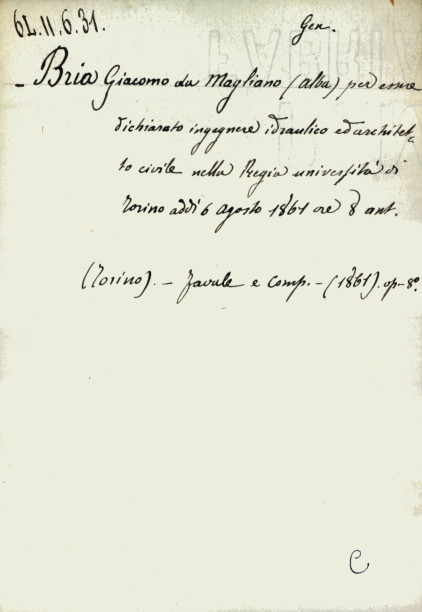 6L.II.6.31. Gen.
- Bria Giacomo da Magliano (Alba) per essere
dichiarato ingegnere idraulico ed architet-
to civile nella Regia università di
Torino addì 6 agosto 1861 ore 8 ant.
(Torino). - Favale e Comp. - (1861). op-8º.
C